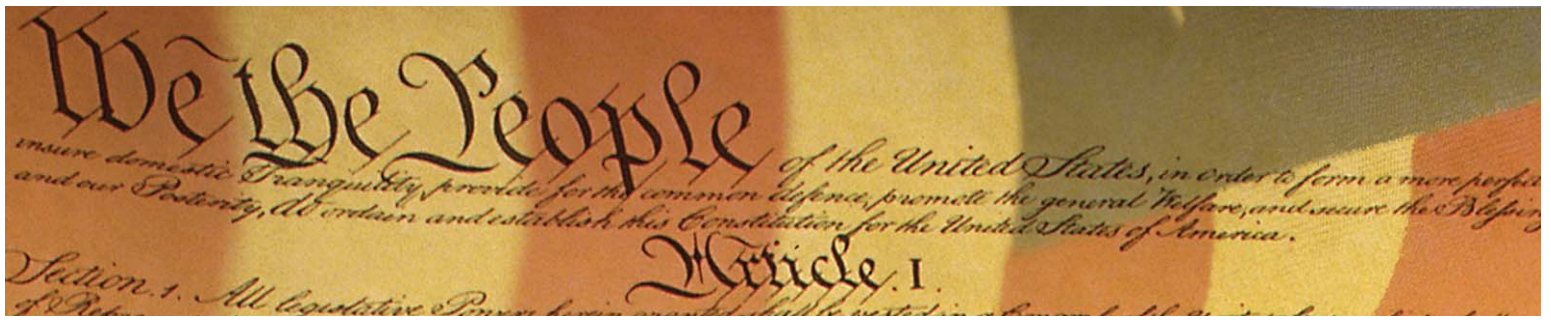 We the People of the United States, in order to form a more perfect
insure domestic Tranquility, provide for the common defence, promote the general Welfare, and secure the Blessing
and our Posterity, do ordain and establish this Constitution for the United States of America.
Article. I.
Section. 1. All legislative Powers herein granted shall be vested in a
of